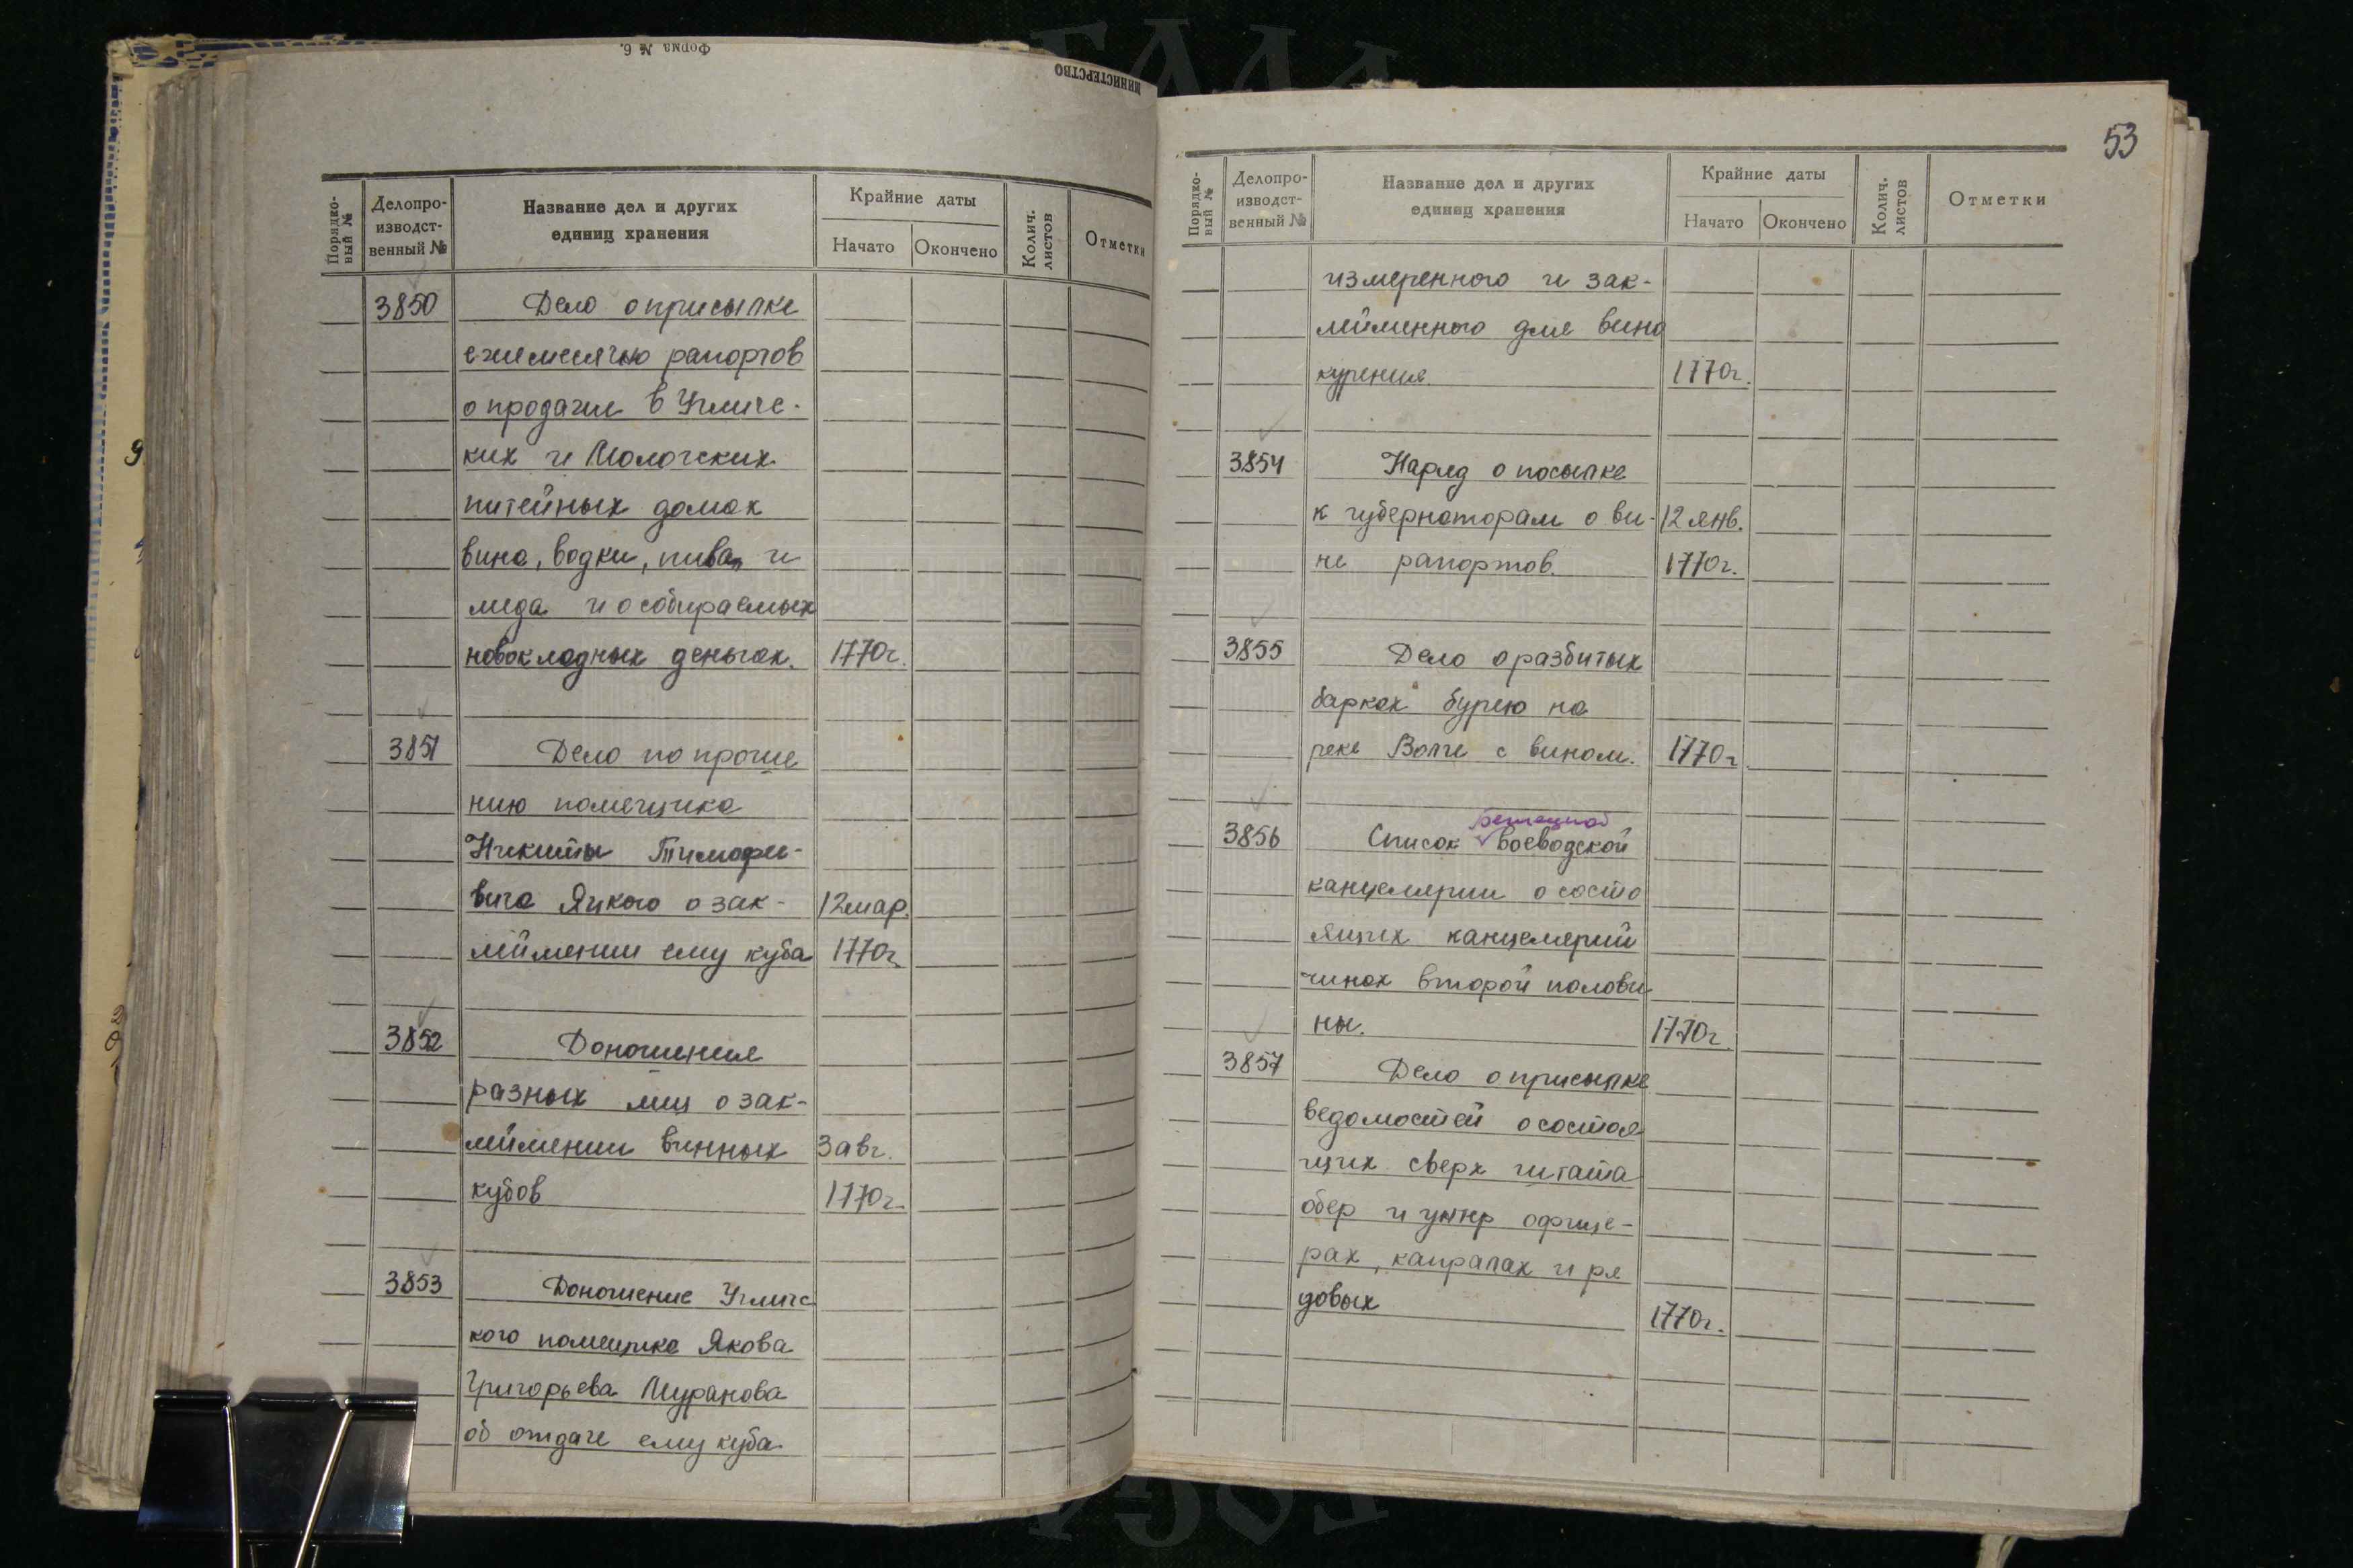 Форма № 6.
МИНИСТЕРСТВО
Порядко-
вый №
Делопро-
изводст-
венный №
Название дел и других
единиц хранения
Крайние даты
Начато
Окончено
Колич.
листов
Отметки
3850 Дело о присылке
ежемесячно рапортов
о продаже в Угличс-
ких и Мологских
питейных домах
вина, водки, пива, и
меда и о собираемых
новокладных деньгах. 1770г.
3851 Дело по проше
нию помещика
Никиты Тимофее-
вича Яцкого о зак- 12 мар.
леймении ему куба 1770г.
3852 Доношения
разных лиц о зак-
леймении винных 3 авг.
кубов 1770г.
3853 Доношение Угличс
кого помещика Якова
Григорьева Муранова
об отдаче ему куба
53
Порядко-
вый №
Делопро-
изводст-
венный №
Название дел и других
единиц хранения
Крайние даты
Начато
Окончено
Колич.
листов
Отметки
измеренного и зак-
лейменного для вино
курения. 1770г.
3854 Наряд о посылке
к губернаторам о ви- 12 янв.
не рапортов. 1770г.
3855 Дело о разбитых
барках бурею на
реке Волге с вином. 1770г
3856 Список воеводской
канцелярии о состо
ящих канцелярий
чинах второй полови
ны. 1770г.
3857 Дело о присылке
ведомостей о состоя
щих сверх штата
обер и унтер офице-
рах, капралах и ря
довых 1770г.